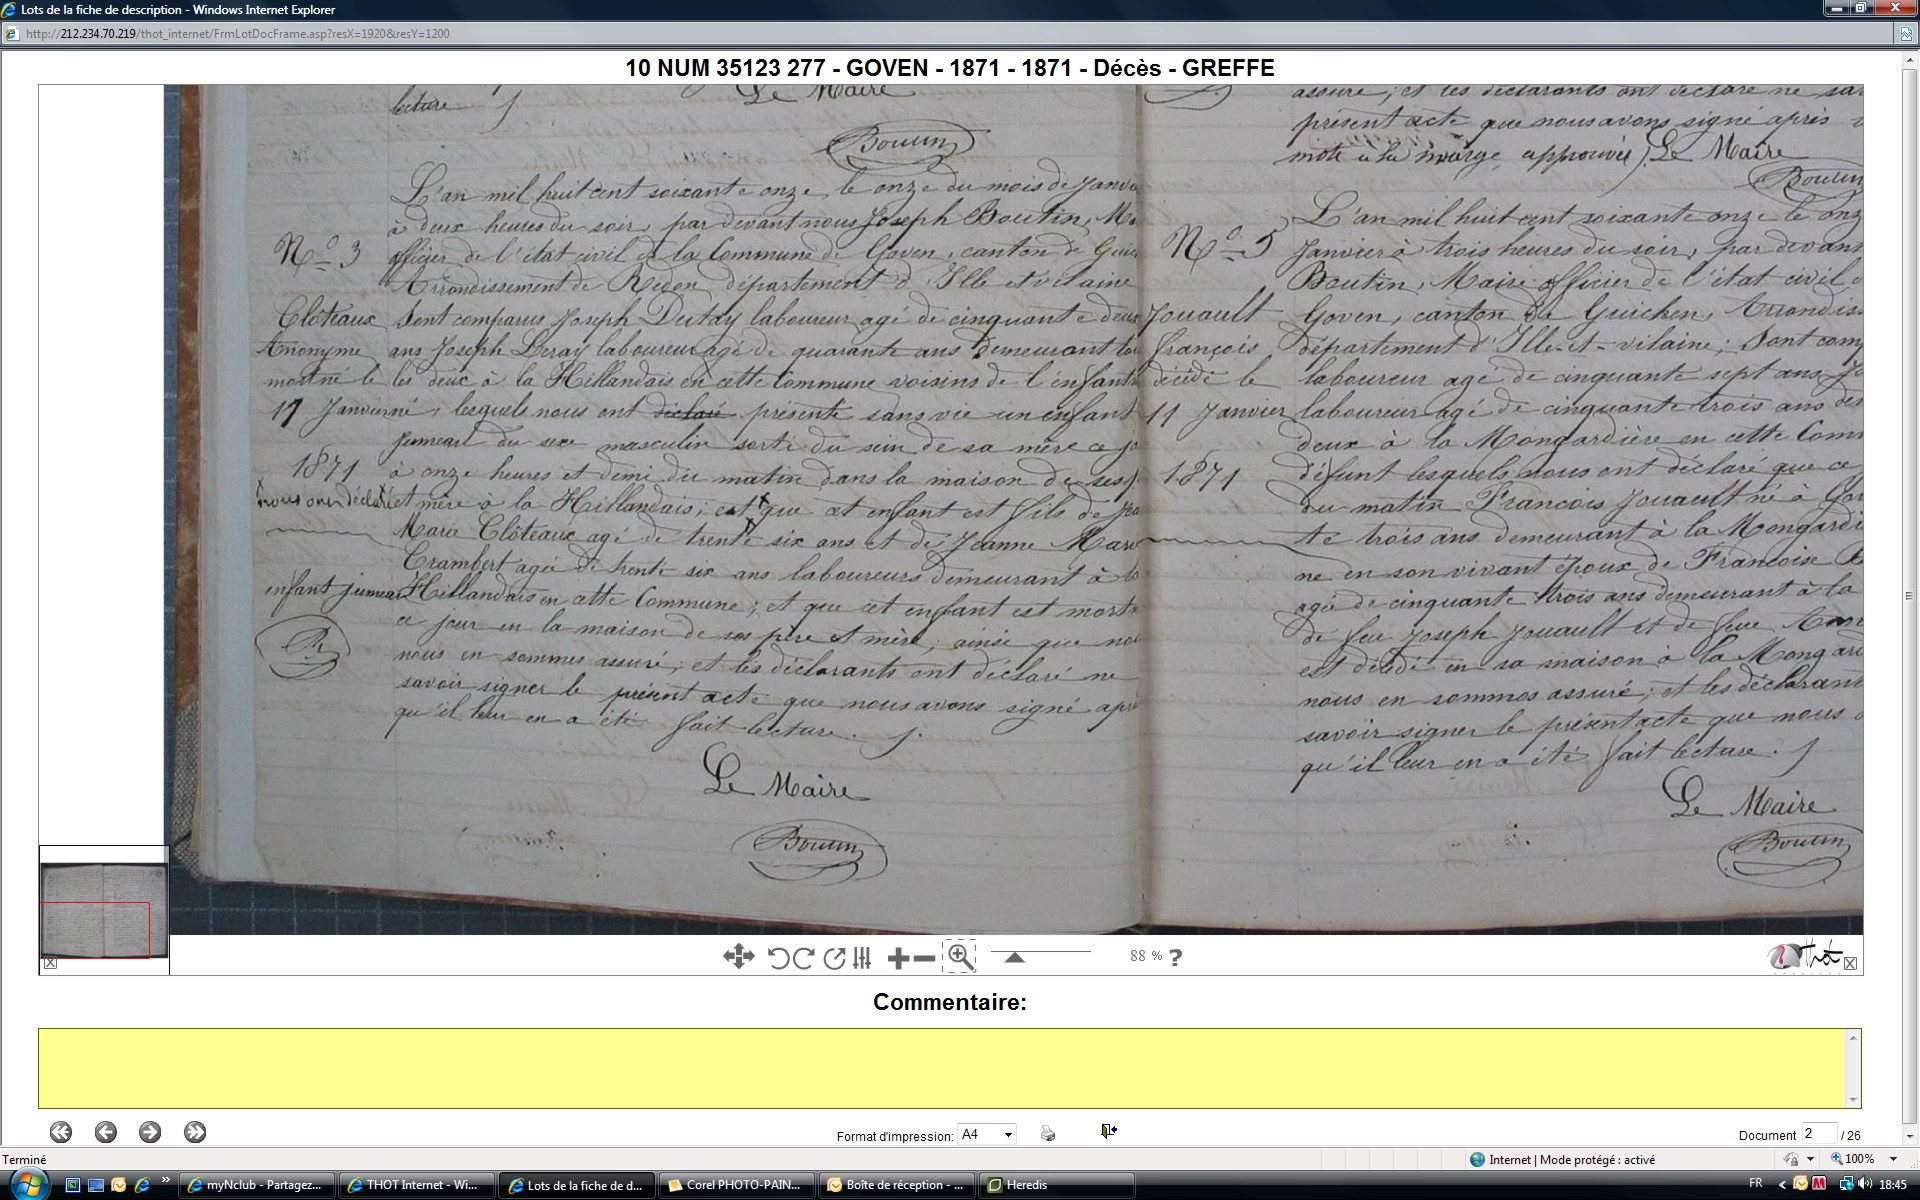 Lots de la fiche de description - Windows Internet Explorer
http://212.234.70.219/thot_internet/FrmLotDocFrame.asp?resX=1920&resY=1200
10 NUM 35123 277 - GOVEN - 1871 - 1871 - Décès - GREFFE
lecture
Le Maire
Boutin
L'an mil huit cent soixante onze, le onze du mois de Janvi
à deux heures du soir, par devant nous Joseph Boutin, Ma
officier de l'état civil de la Commune de Goven, canton de Guic
Arrondissement de Redon, département d'Ille et vilaine
Sont comparus Joseph Dutay laboureur agé de cinquante deux
ans Joseph Leray laboureur agé de quarante ans demeurant tou
les deux à la Hillandais en cette Commune voisins de l'enfant
né, lesquels nous ont déclaré présenté sans vie un enfant
jumeau du sexe masculin sorti du sein de sa mère ce jo
à onze heures et demi du matin dans la maison de ses p
et mère à la Hillandais; et que cet enfant est fils de Jea
Marie Clôteaux agé de trente six ans et de Jeanne Marie
Crambert agée de trente six ans laboureurs demeurant à la
Hillandais en cette Commune; et que cet enfant est mort
ce jour en la maison de ses père et mère, ainsi que no
nous en sommes assuré; et les déclarants ont déclaré ne
savoir signer le présent acte que nous avons signé aprè
qu'il leur en a été fait lecture.
Le Maire
Boutin
No 3
Clôteaux
Anonyme
mort né le
11 Janvier
1871
nous ont déclaré
enfant jumeau
B
assuré; et les déclarants ont déclaré ne sav
présent acte que nous avons signé après
mots à la marge approuvés. Le Maire
Boutin
No 5
Jouault
François
décédé le
11 Janvier
1871
L'an mil huit cent soixante onze le onz
Janvier à trois heures du soir, par devan
Boutin, Maire officier de l'état civil
Goven, canton de Guichen, Arrondis
département d'Ille-et-vilaine; Sont comp
laboureur agé de cinquante sept ans, Jo
laboureur agé de cinquante trois ans de
deux à la Mongardière en cette Comm
défunt lesquels nous ont déclaré que ce
du matin François Jouault né à Gov
te trois ans demeurant à la Mongardi
ne en son vivant époux de Françoise
agée de cinquante trois ans demeurant à la
de feu Joseph Jouault et de feue Ann
est décédé en sa maison à la Mongard
nous en sommes assuré; et les déclarant
savoir signer le présent acte que nous
qu'il leur en a été fait lecture.
Le Maire
Boutin
88 % ?
Thot
Commentaire:
Format d'impression: A4
Document 2 / 26
Terminé
Internet | Mode protégé : activé
100%
myNclub - Partagez...
THOT Internet - Wi...
Lots de la fiche de d...
Corel PHOTO-PAIN...
Boîte de réception - ...
Heredis
FR
18:45